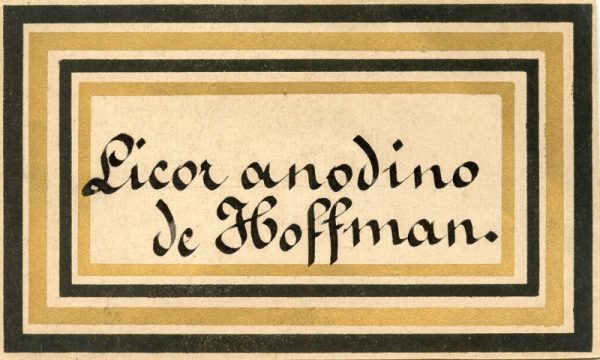 Licor anodino
de Hoffman.